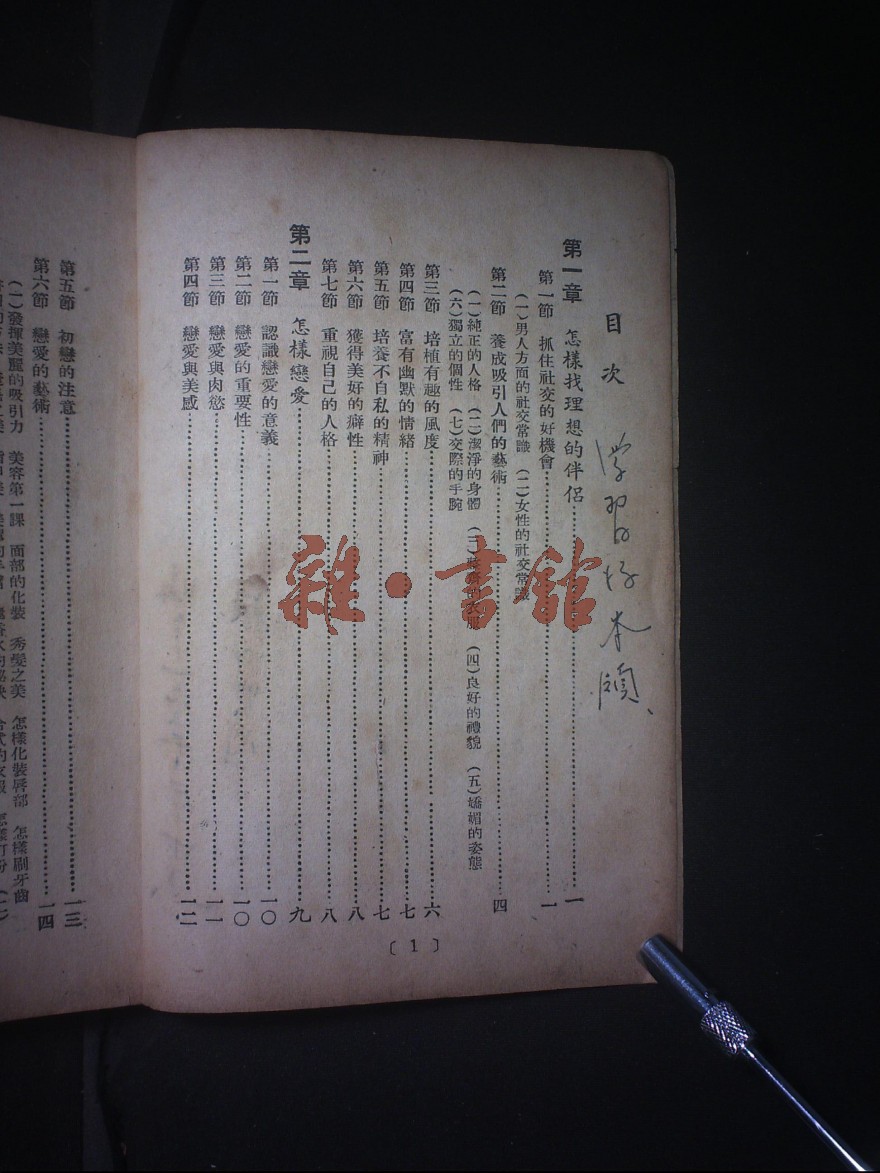 目次
学習好本領、
第一章　怎樣找理想的伴侶……一
第一節　抓住社交的好機會……一
(一)男人方面的社交常識　(二)女性的社交常識
第二節　養成吸引人們的藝術……四
(一)純正的人格　(二)潔淨的身體　(三)的衣服　(四)良好的禮貌　(五)嬌媚的姿態
(六)獨立的個性　(七)交際的手腕
第三節　培植有趣的風度……六
第四節　富有幽默的情緒……七
第五節　培養不自私的精神……七
第六節　獲得美好的癖性……八
第七節　重視自己的人格……八
第二章　怎樣戀愛……九
第一節　認識戀愛的意義……一〇
第二節　戀愛的重要性……一〇
第三節　戀愛與肉慾……一一
第四節　戀愛與美感……一二
〔1〕
第五節　初戀的注意……一三
第六節　戀愛的藝術……一四
(一)發揮美麗的吸引力　美容第一課　面部的化裝　秀髮之美　怎樣化裝唇部　怎樣刷牙齒
雜·書館